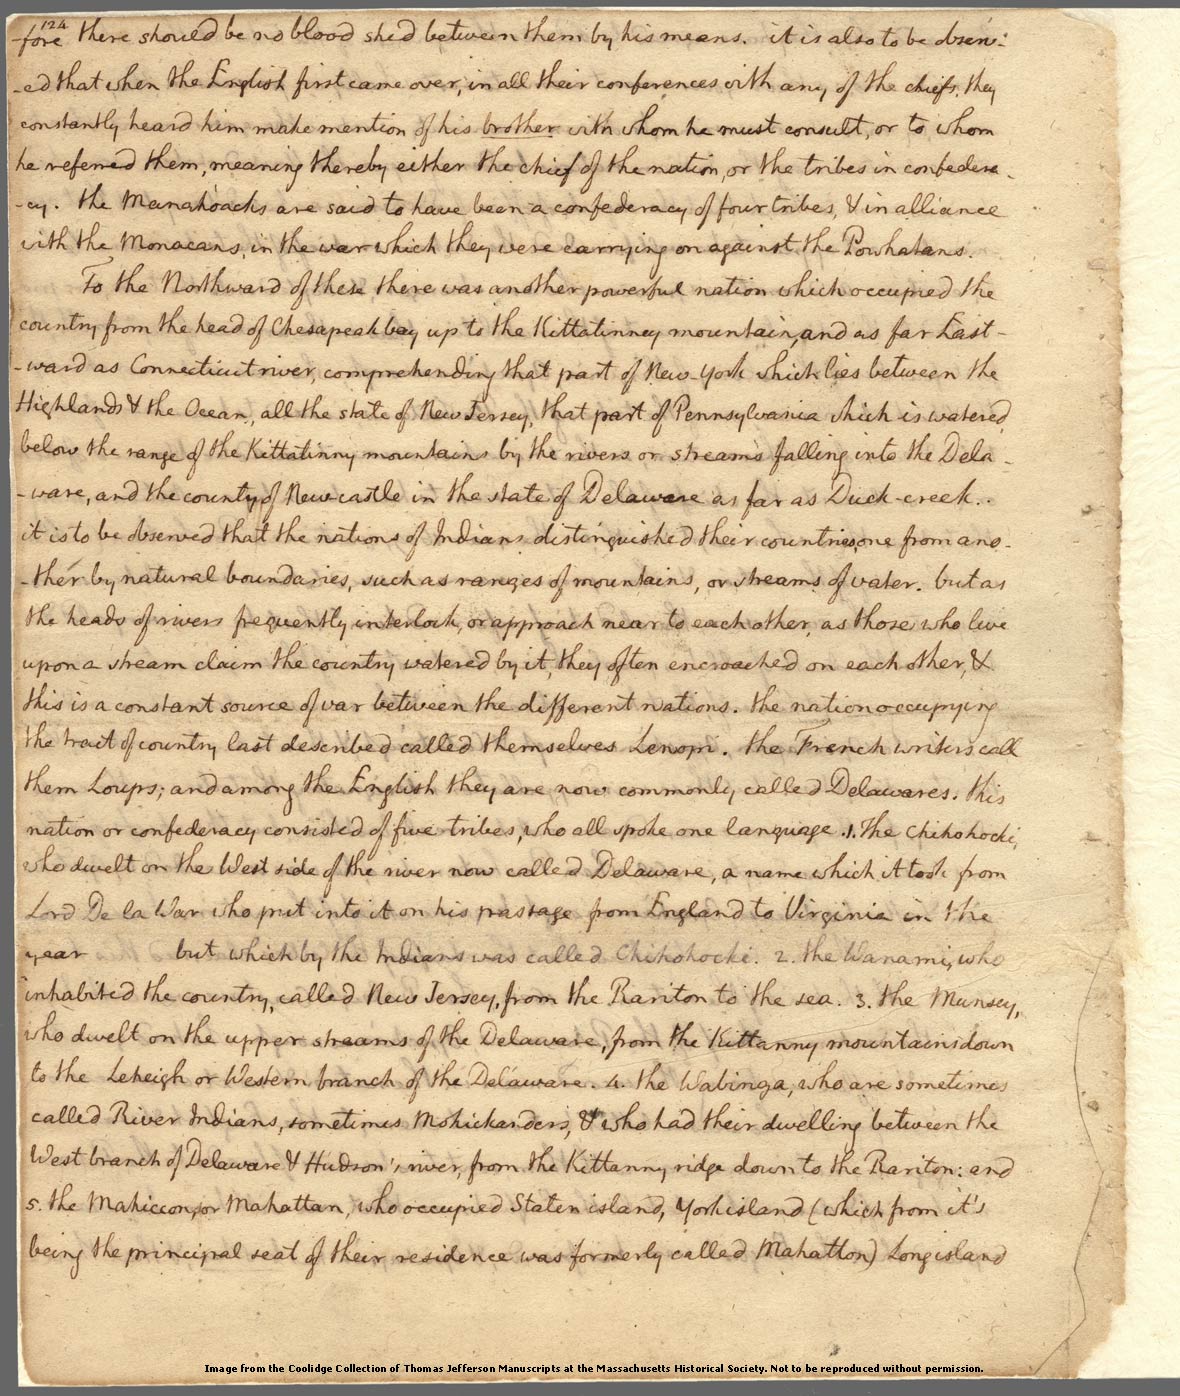 124
-fore there should be no blood shed between them by his means. it is also to be observ-
-ed that when the English first came over, in all their conferences with any of the chiefs, they
constantly heard him make mention of his brother with whom he must consult, or to whom
he referred them, meaning thereby either the chief of the nation, or the tribes in confedera-
-cy. the Manahoacks are said to have been a confederacy of four tribes, & in alliance
with the Monacans, in the war which they were carrying on against the Powhatans.
To the Northward of these there was another powerful nation which occupied the
country from the head of Chesapeak bay up to the Kittatinney mountain, and as far East-
-ward as Connecticut river, comprehending that part of New-York which lies between the
Highlands & the Ocean, all the state of New Jersey, that part of Pennsylvania which is watered,
below the range of the Kittatinny mountains by the rivers or streams falling into the Dela-
-ware, and the county of Newcastle in the state of Delaware as far as Duck-creek..
it is to be observed that the nations of Indians distinguished their countries, one from ano-
-ther by natural boundaries, such as ranges of mountains, or streams of water. but as
the heads of rivers frequently interlock, or approach near to each other, as those who live
upon a stream claim the country watered by it, they often encroached on each other, &
this is a constant source of war between the different nations. the nation occupying
the tract of country last described called themselves Lenopi. the French writers call
them Loups; and among the English they are now commonly called Delawares. this
nation or confederacy consisted of five tribes, who all spoke one language. 1. The Chihohocki,
who dwelt on the West side of the river now called Delaware, a name which it took from
Lord De la War who put into it on his passage from England to Virginia in the
year but which by the Indians was called Chihohocki. 2. the Wanami, who
inhabited the country, called New Jersey, from the Rariton to the sea. 3. the Munsey,
who dwelt on the upper streams of the Delaware, from the Kittanny mountains down
to the Leheigh or Western branch of the Delaware. 4. the Wabinga, who are sometimes
called River Indians, sometimes Mohickanders, & who had their dwelling between the
West branch of Delaware & Hudson's river, from the Kittanny ridge down to the Rariton: and
5. the Mahiccon, or Mahattan, who occupied Staten island, York island (which from it's
being the principal seat of their residence was formerly called Mahatton) Long island
Image from the Coolidge Collection of Thomas Jefferson Manuscripts at the Massachusetts Historical Society. Not to be reproduced without permission.